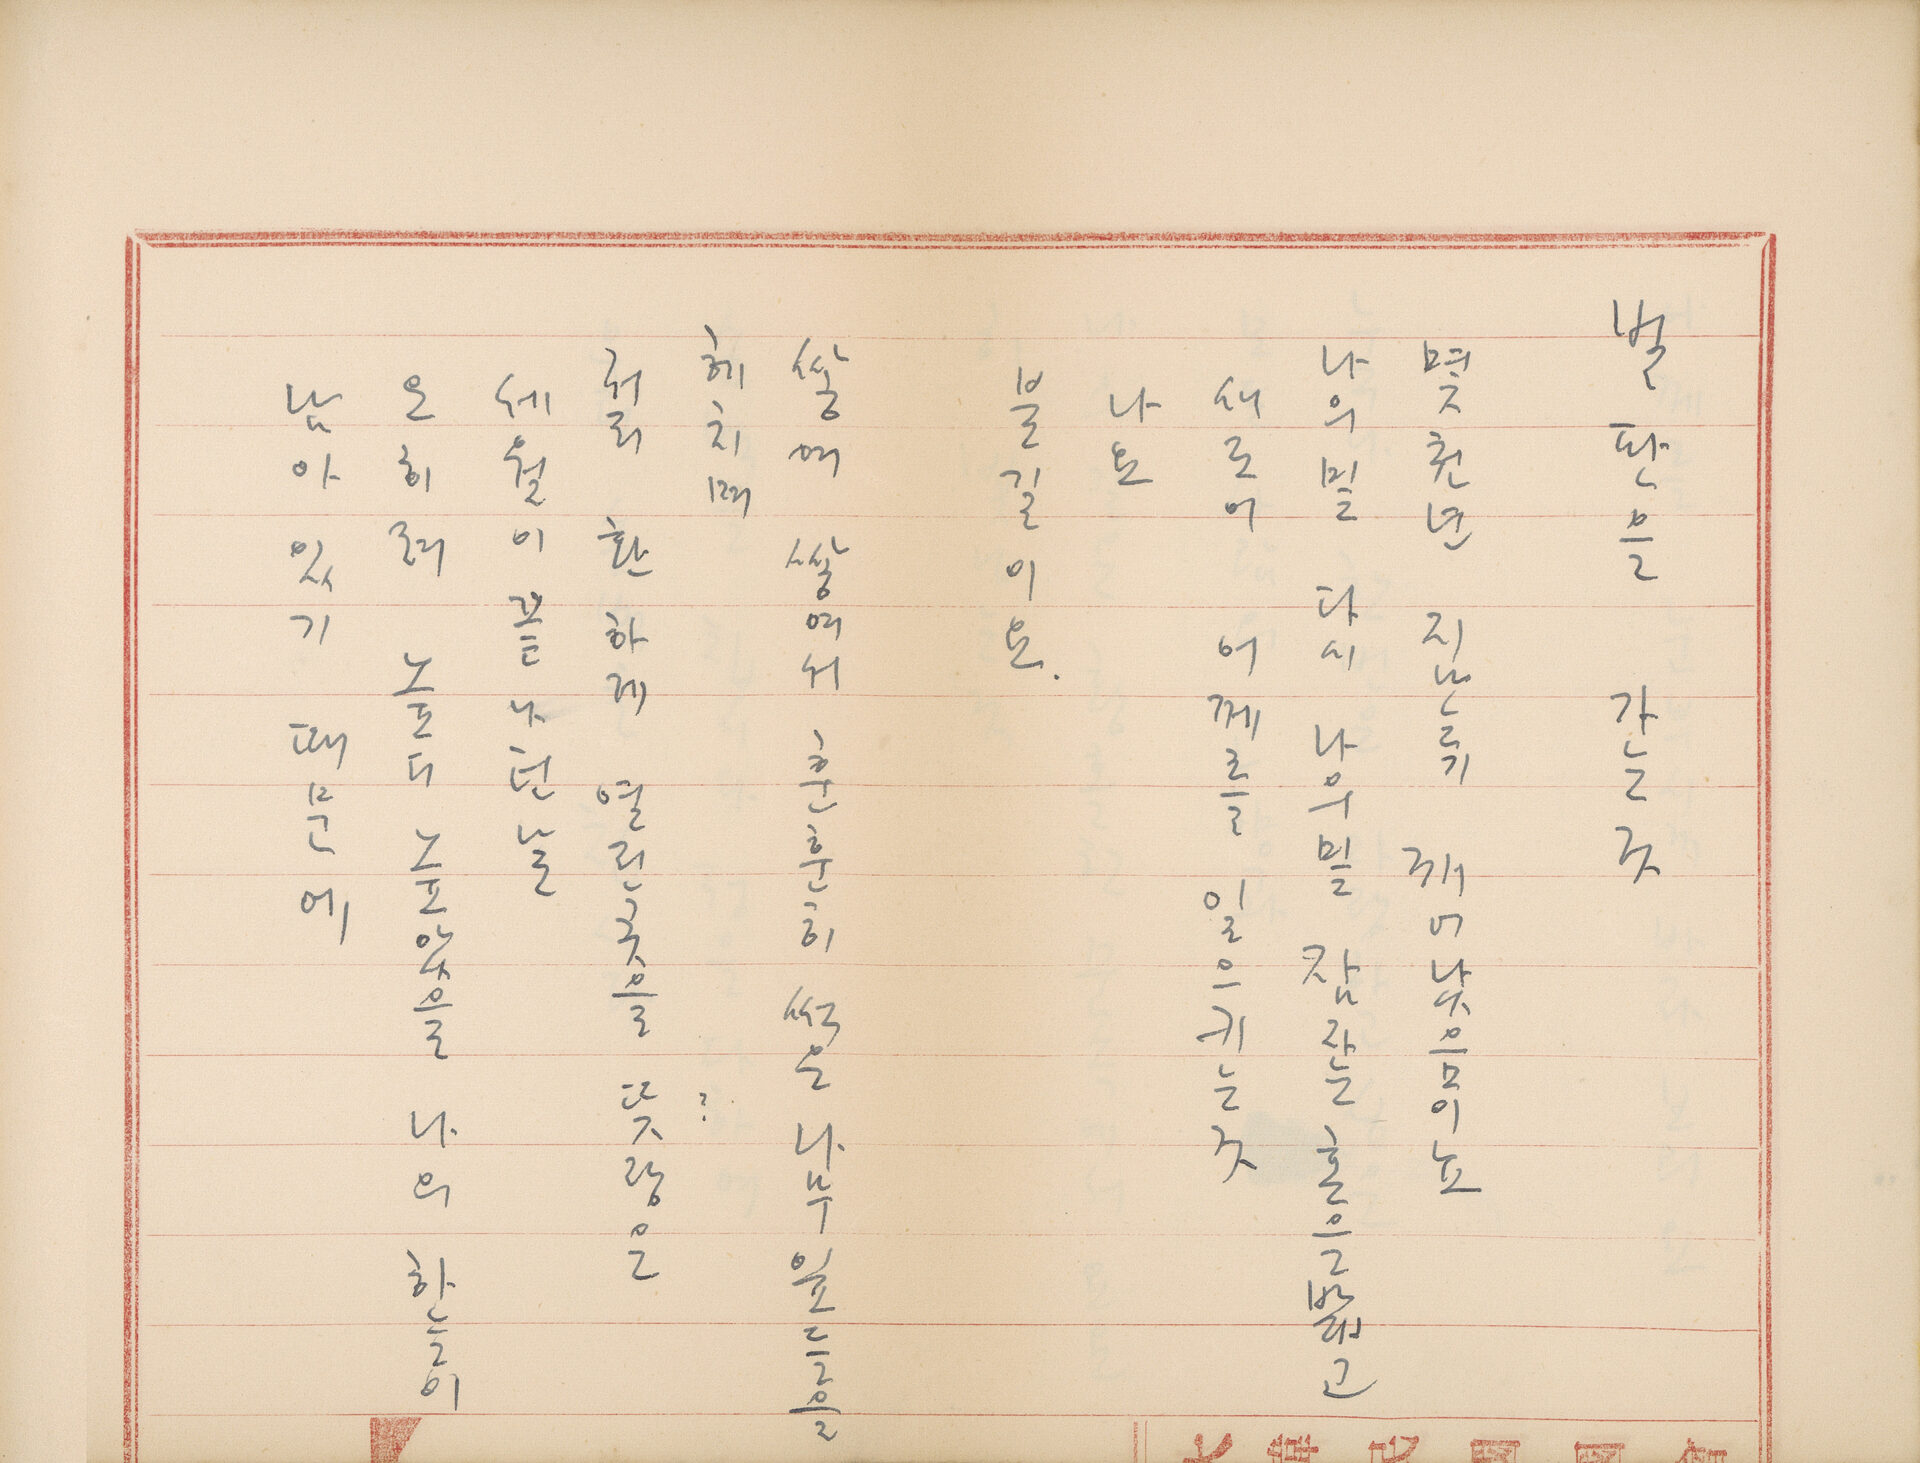 벌판을 가는 것
몇천년 깨어났음이뇨
나의밑 다시 나의밑 잠자는 흙을밟고
새로이 어깨를 일으키는 것
나요
불길이요.
쌓여 쌓여서 훈훈히 썩은 나무잎들을
헤치며
저리 환하게 열린곳을 뜻함은
세월이 끝나던 날
오히려 높디 높았을 나의 하늘이
남아있기 때문에